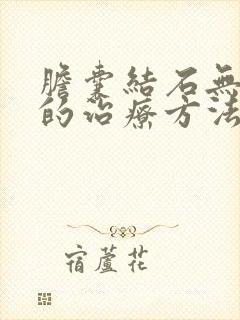 膽囊結石無
的治療方法
宿蘆花